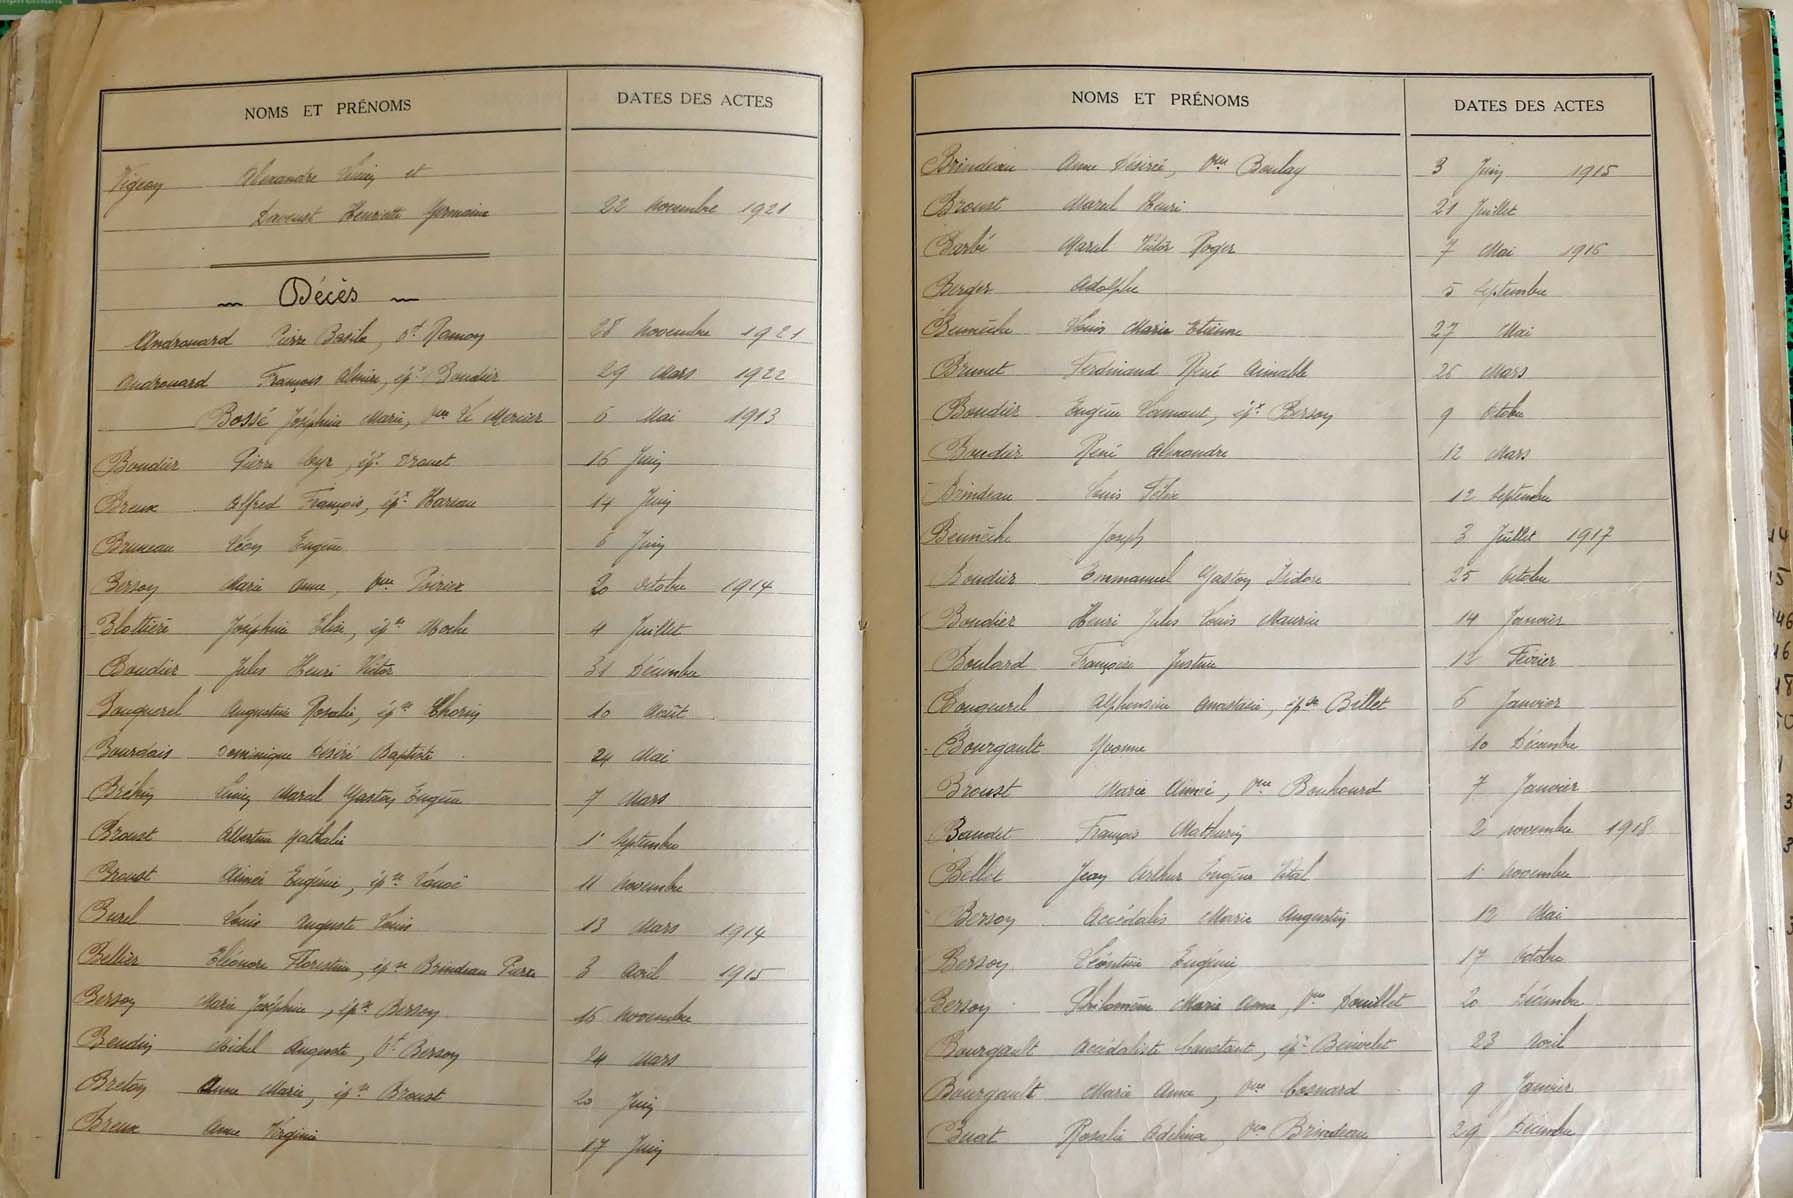 NOMS ET PRÉNOMS DATES DES ACTES
Vigeon Alexandre Lucien et
Davoust Henriette Germaine 22 Novembre 1921
Décès
Androuard Pierre Basile, vf Ramon 28 Novembre 1921
Androuard François Almire, épx Boudier 29 Mars 1922
Bossé Joséphine Marie, Vve Le Mercier 6 Mai 1913
Boudier Pierre Cyr, épx 16 Juin
Breux Alfred François, épx Harseau 14 Juin
Bruneau Léon Eugène 6 Juin
Berson Marie Anne, Vve Poirier 20 Octobre 1914
Blottière Joséphine Elise, épse Moche 4 Juillet
Boudier Jules Henri Victor 31 Décembre
Bouquerel Augustine Rosalie, épse Chorin 10 Août
Bourdais Dominique Désiré Baptiste 24 Mai
Bréhin Lucien Marcel Gaston Eugène 7 Mars
Broust Albertine Nathalie 1er Septembre
Broust Aimée Eugénie, épse 11 Novembre
Burel Louis Auguste Louis 13 Mars 1914
Bellier Eléonore Florentine, épse Brindeau Pierre 3 Avril 1915
Berson Marie Joséphine, épse Berson 16 Novembre
Beudin Michel Auguste, Vf Berson 24 Mars
Breton Anne Marie, épse Broust 20 Juin
Breux Anne Virginie 17 Juin
NOMS ET PRÉNOMS DATES DES ACTES
Brindeau Anne Désirée, Vve Boulay 3 Juin 1915
Broust Marcel Henri 21 Juillet
Barbé Marcel Victor Roger 7 Mai 1916
Berger Adolphe 5 Septembre
Bumèche Louis Marie Etienne 27 Mai
Brunet Ferdinand René Aimable 26 Mars
Boudier Eugène Constant, épx Berson 9 Octobre
Boudier René Alexandre 12 Mars
Brindeau Louis Félix 12 Septembre
Bumèche Joseph 3 Juillet 1917
Boudier Emmanuel Gaston Isidore 25 Octobre
Boudier Henri Jules Louis Maurice 14 Janvier
Boulard Françoise Justine 12 Février
Bouquerel Alphonsine Anastasie, épse Billet 6 Janvier
Bourgault Yvonne 10 Décembre
Broust Marie Aimée, Vve Bouhourd 7 Janvier
Baudet François Mathurin 2 novembre 1918
Bellet Jean Arthur Eugène Vital 1er Novembre
Berson Accédalis Marie Augustin 12 Mai
Berson Léontine Eugénie 17 Octobre
Berson Philomène Marie Anne, Vve Douillet 20 Décembre
Bourgault Accédaliste Constant, épx 23 Avril
Bourgault Marie Anne, Vve Cosnard 9 Janvier
Buat Rosalie Adelina, Vve Brindeau 29 Décembre